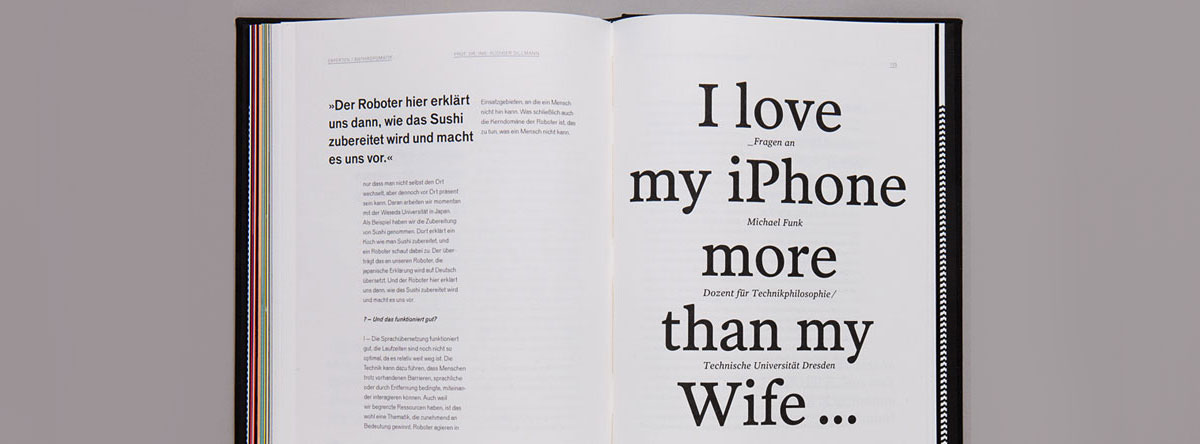 EXPERTEN / ANTHROPOMATIK
PROF. DR.-ING. RÜDIGER DILLMANN
»Der Roboter hier erklärt
uns dann, wie das Sushi
zubereitet wird und macht
es uns vor.«
nur dass man nicht selbst den Ort
wechselt, aber dennoch vor Ort präsent
sein kann. Daran arbeiten wir momentan
mit der Waseda Universität in Japan.
Als Beispiel haben wir die Zubereitung
von Sushi genommen. Dort erklärt ein
Koch wie man Sushi zubereitet, und
ein Roboter schaut dabei zu. Der über-
trägt das an unseren Roboter, die
japanische Erklärung wird auf Deutsch
übersetzt. Und der Roboter hier erklärt
uns dann, wie das Sushi zubereitet wird
und macht es uns vor.
? — Und das funktioniert gut?
! — Die Sprachübersetzung funktioniert
gut, die Laufzeiten sind noch nicht so
optimal, da es relativ weit weg ist. Die
Technik kann dazu führen, dass Menschen
trotz vorhandenen Barrieren, sprachliche
oder durch Entfernung bedingte, miteinan-
der interagieren können. Auch weil
wir begrenzte Ressourcen haben, ist das
wohl eine Thematik, die zunehmend an
Bedeutung gewinnt. Roboter agieren in
Einsatzgebieten, an die ein Mensch
nicht hin kann. Was schließlich auch
die Kerndomäne der Roboter ist, das
zu tun, was ein Mensch nicht kann.
I love
_Fragen an
my iPhone
Michael Funk
more
Dozent für Technikphilosophie/
than my
Technische Universität Dresden
Wife ...